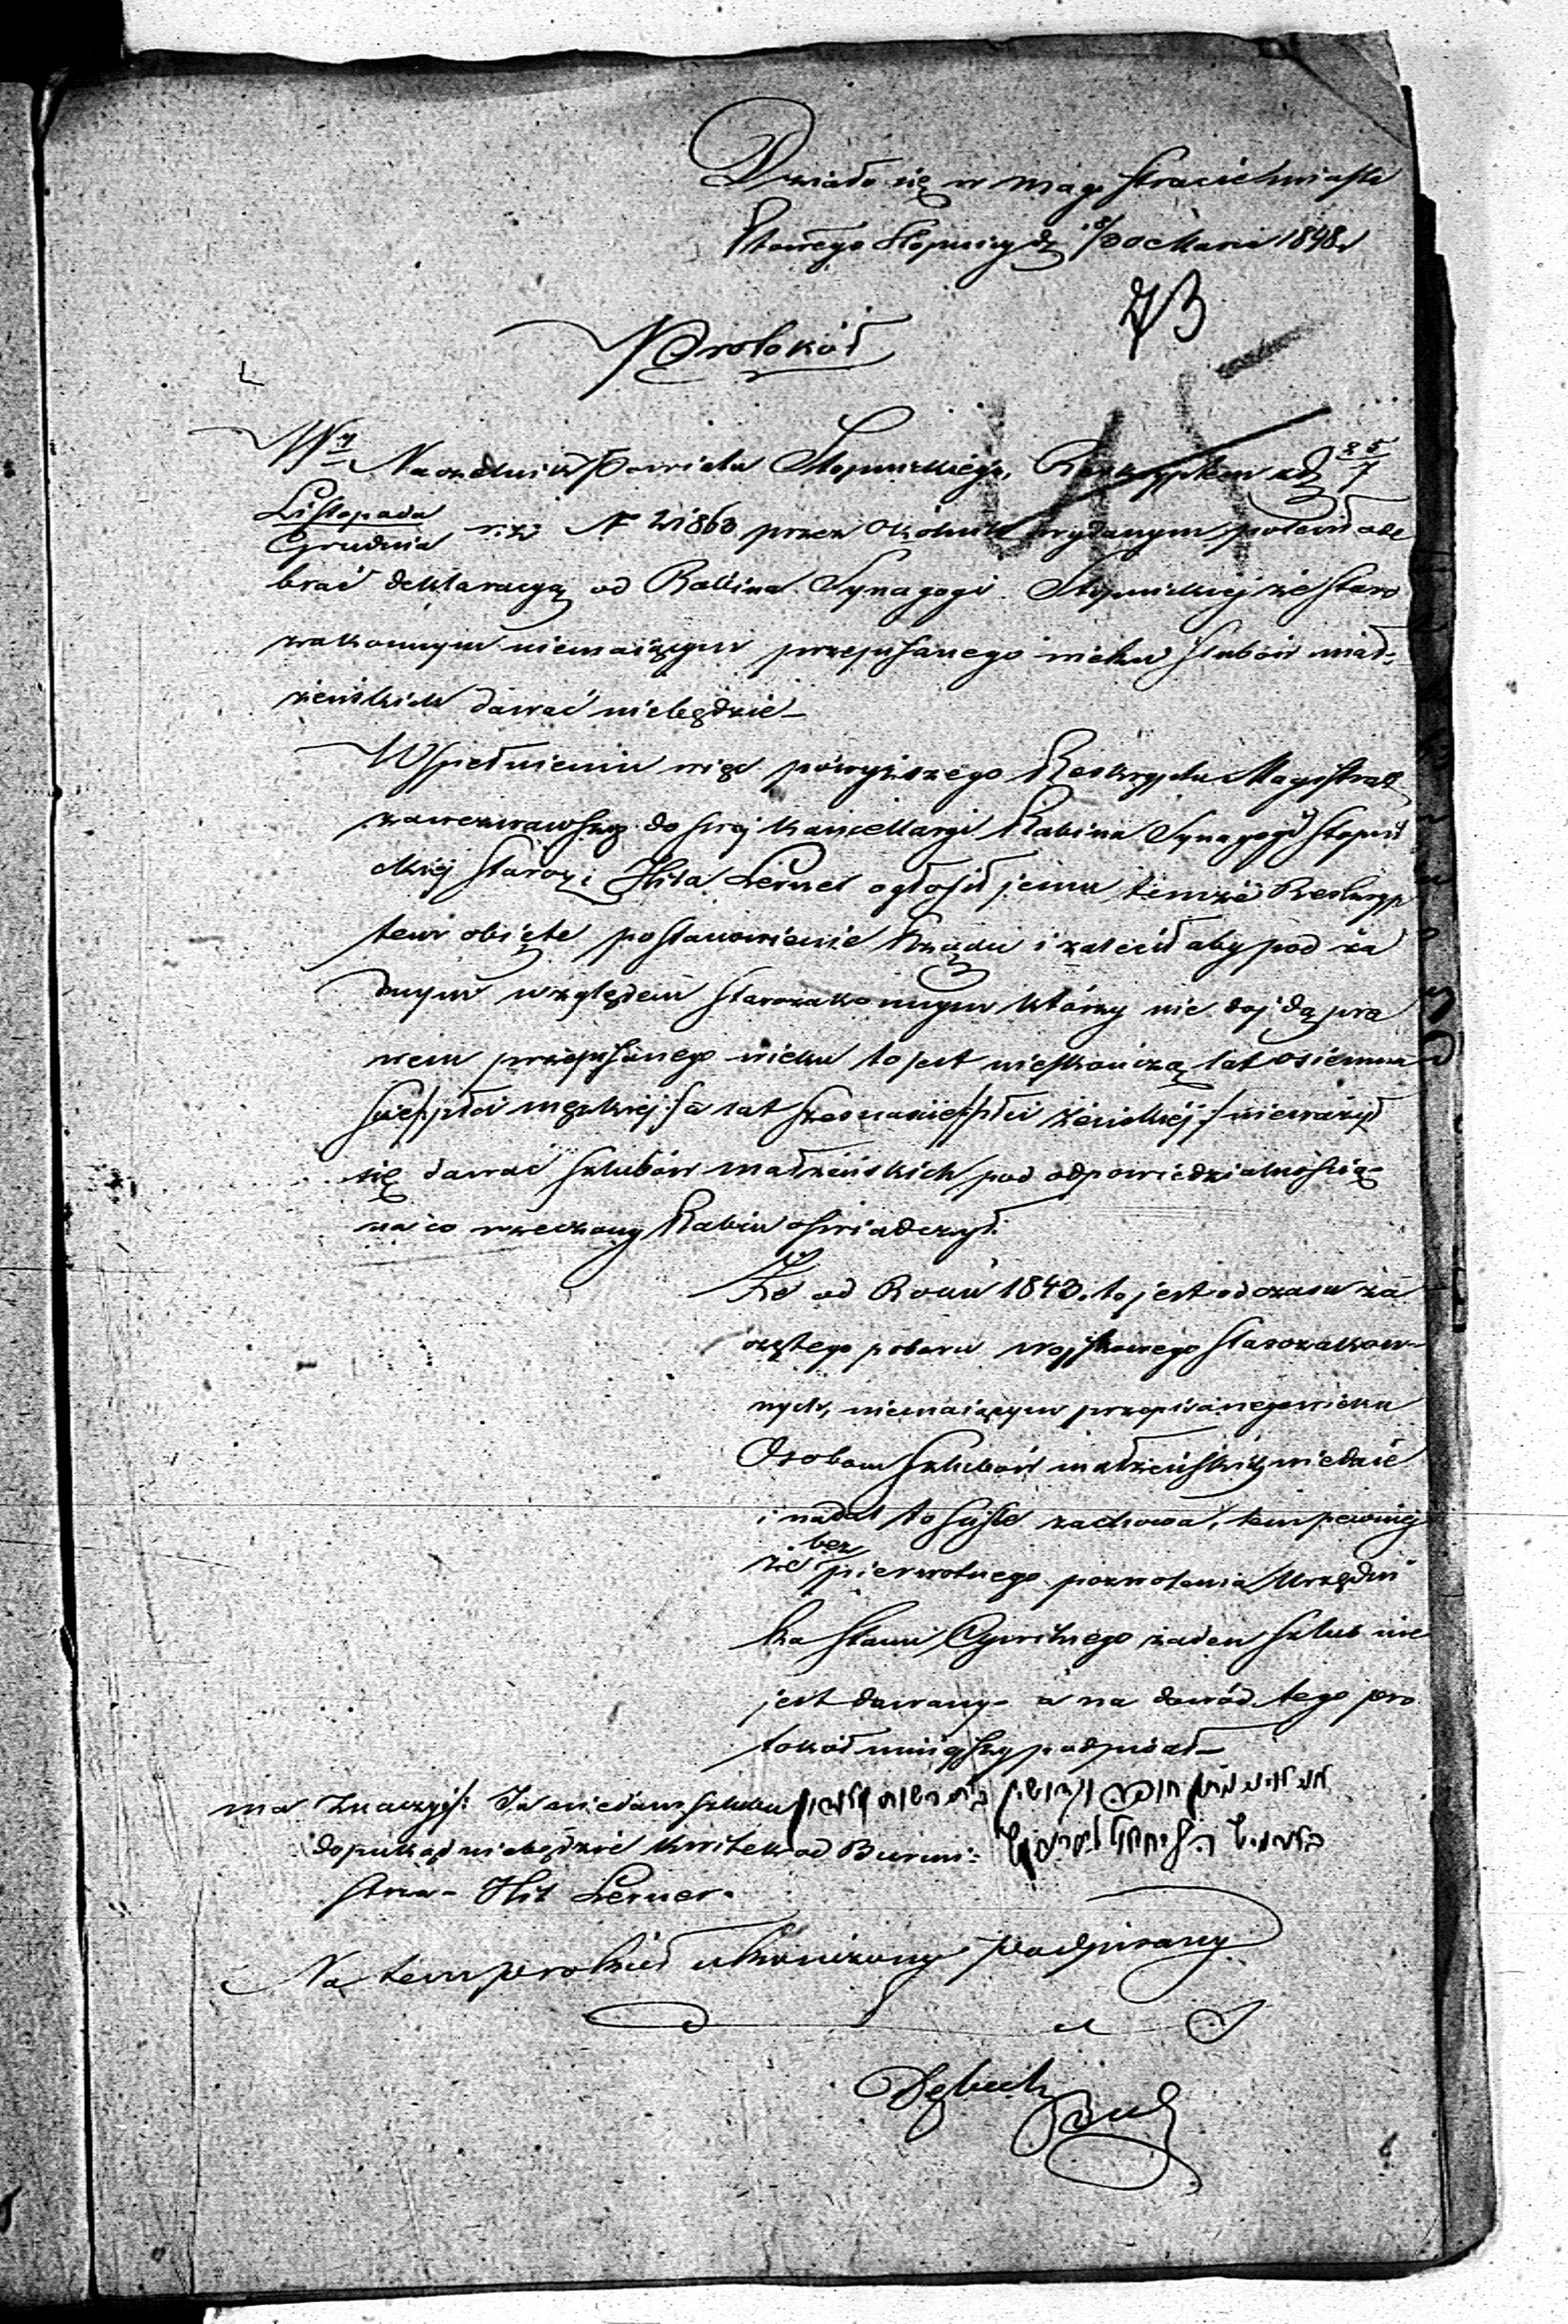 Działo się w magistracie miasta
Stopnicy d. 18/30 Marca 1848 r
73
Protokół
Wy Naczelnik Powiatu Stopnickiego, Reskryptem z d. 25/7
Listopada/Grudnia r. z. N 21860 przez okólnik wydanym polecił ode
brać deklaracyą od Rabina Synagogi Stopnickiej że staro
zakonnym niemaiącym przepisanego wieku ślubów małż
żeńskich dawać niebędzie
W spełnieniu więc powyższego Reskryptu Magistrat
zawezwawszy do swej kancellaryi Rabina Synagogi Stopni
ckiej Staroz: Hila Lerner ogłosił jemu temże Reskryp
tem obięte postanowienie Rządu i zalecił aby pod ża
dnym względem starozakonnym którzy nie dojdą pra
wem przepisanego wieku to jest nieskończą lat osiemna
ście /: płci męzkiej :/ a lat szesnaście /: płci żeńskiej :/ nieważył
się dawać szlubów małżeńskich pod odpowiedzialnością
na co rzeczony Rabin oświadczył.
Że od Roku 1843. to jest od czasu za
czętego poboru wojskowego starozakon
nych, niemaiącym przepisanego wieku
Osobom szlubów małżeńskich niedaie
i nadal to ściśle zachowa, tem pewniej
że bez pierwotnego pozwolenia Urzędni
ka Stanu Cywilnego żaden szlub nie
jest dawany - a na dowód tego pro
tokół niniejszy podpisał
ma znaczyć: Ja niedam szlubu
dopukąd niebędzie kwitek od Burmi:
strza - Hil Lerner.
Na tem protokół ukończony podpisany